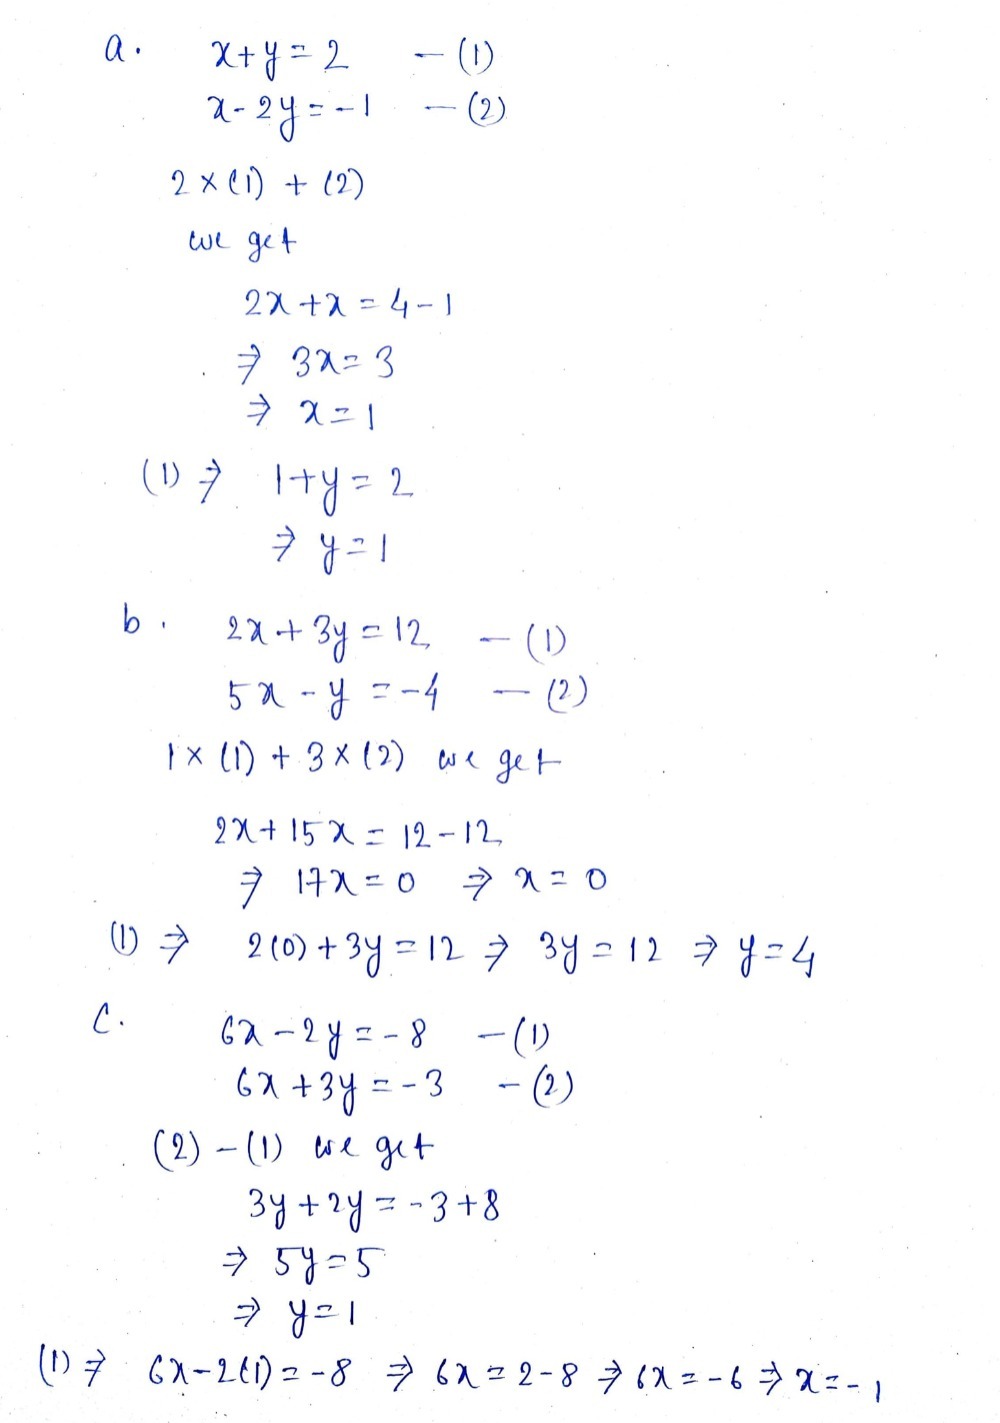 a. x+y=2 —(1)
x-2y=-1 —(2)
2×(1) + (2)
we get
2x+x=4-1
⇒ 3x=3
⇒ x=1
(1) ⇒ 1+y=2
⇒ y=1
b. 2x+3y=12 —(1)
5x-y=-4 —(2)
1×(1) + 3×(2) we get
2x+15x=12-12
⇒ 17x=0 ⇒ x=0
(1) ⇒ 2(0)+3y=12 ⇒ 3y=12 ⇒ y=4
c. 6x-2y=-8 —(1)
6x+3y=-3 —(2)
(2)-(1) we get
3y+2y=-3+8
⇒ 5y=5
⇒ y=1
(1) ⇒ 6x-2(1)=-8 ⇒ 6x=2-8 ⇒ 6x=-6 ⇒ x=-1